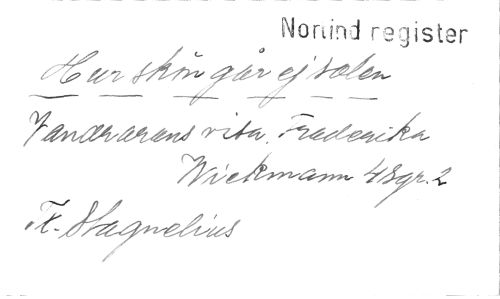 Norlind register
Hur skön går ej solen
Vandrarens visa. Frederika
Wickmann 4 Sgr. 2
Tx. Stagnelius